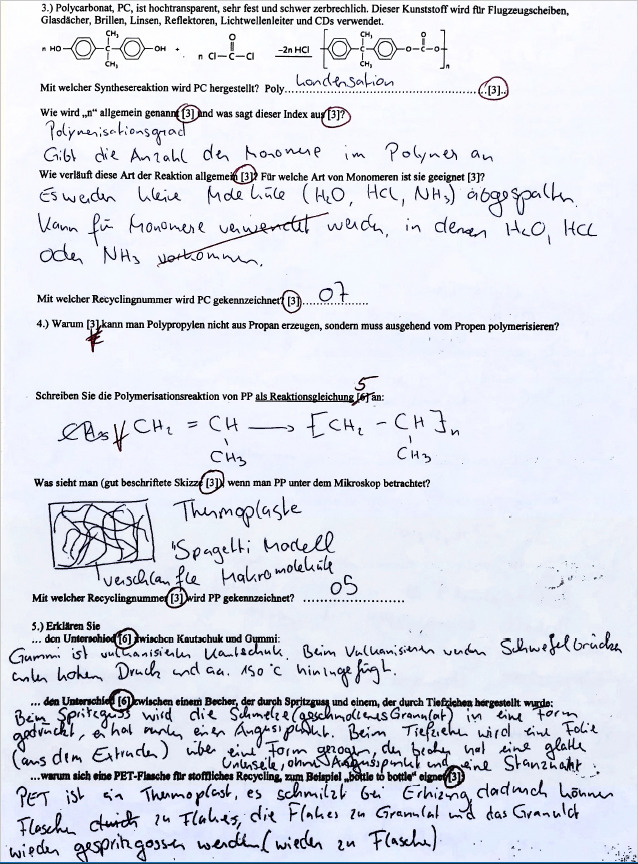 3.) Polycarbonat, PC, ist hochtransparent, sehr fest und schwer zerbrechlich. Dieser Kunststoff wird für Flugzeugscheiben,
Glasdächer, Brillen, Linsen, Reflektoren, Lichtwellenleiter und CDs verwendet.
n HO CH₃ CH₃ OH + n Cl C O Cl −2n HCl [ CH₃ CH₃ O C O O ] n
Mit welcher Synthesereaktion wird PC hergestellt? Poly...Kondensation...[3]..
Wie wird „n“ allgemein genannt [3] und was sagt dieser Index aus [3]?
Polymerisationsgrad
Gibt die Anzahl der Monomere im Polymer an
Wie verläuft diese Art der Reaktion allgemein [3]? Für welche Art von Monomeren ist sie geeignet [3]?
Es werden kleine Moleküle (H₂O, HCl, NH₃) abgespalten.
Kann für Monomere verwendet werden, in denen H₂O, HCl
oder NH₃ vorkommen.
Mit welcher Recyclingnummer wird PC gekennzeichnet? [3]...07...
4.) Warum [3] kann man Polypropylen nicht aus Propan erzeugen, sondern muss ausgehend vom Propen polymerisieren?
5
Schreiben Sie die Polymerisationsreaktion von PP als Reaktionsgleichung [6] an:
CH₂ = CH → [CH₂ − CH]n
CH₃ CH₃
Was sieht man (gut beschriftete Skizze [3]) wenn man PP unter dem Mikroskop betrachtet?
Thermoplaste
"Spagetti Modell
verschlaufte Makromoleküle
Mit welcher Recyclingnummer [3] wird PP gekennzeichnet? 05
5.) Erklären Sie
... den Unterschied [6] zwischen Kautschuk und Gummi:
Gummi ist vulkanisierter Kautschuk. Beim Vulkanisieren werden Schwefelbrücken
unter hohen Druck und ca. 150°C hinzugefügt.
... den Unterschied [6] zwischen einem Becher, der durch Spritzguss und einem, der durch Tiefziehen hergestellt wurde:
Beim Spritzguss wird die Schmelze (geschmolzenes Granulat) in eine Form
gedrückt, er hat unten einen Angusspunkt. Beim Tiefziehen wird eine Folie
(aus dem Extruder) über eine Form gezogen, der becher hat eine glatte
Unterseite, ohne Angusspunkt und eine Stanznaht.
...warum sich eine PET-Flasche für stoffliches Recycling, zum Beispiel „bottle to bottle“ eignet [3]:
PET ist ein Thermoplast, es schmilzt bei Erhizung dadurch können
Flaschen durch zu Flakes, die Flakes zu Granulat und das Granulat
wieder gespritzgossen werden (wieder zu Flasche).